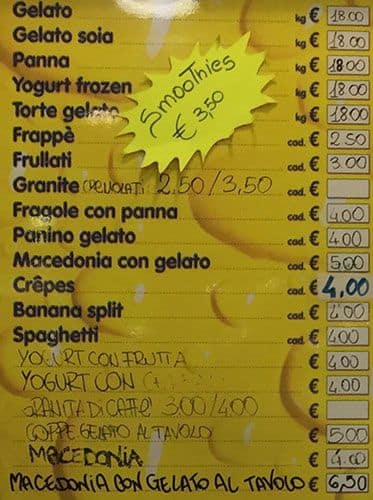 Gelato kg € 18.00
Gelato soia kg € 18.00
Panna kg € 18.00
Yogurt frozen kg € 18.00
Torte gelato kg € 18.00
SMOOTHIES
€ 3,50
Frappè cad. € 2.50
Frullati cad. € 3.00
Granite (CREMOLATI) 2.50/3,50 cad. €
Fragole con panna cad. € 4.00
Panino gelato cad. € 4.00
Macedonia con gelato cad. € 5.00
Crêpes cad. € 4,00
Banana split cad. € 4.00
Spaghetti cad. € 4.00
YOGURT CON FRUTTA € 4.00
YOGURT CON € 4.00
GRANITA DI CAFFE' 3.00/4.00 €
COPPE GELATO AL TAVOLO € 5.00
MACEDONIA € 4.00
MACEDONIA CON GELATO AL TAVOLO € 6,50